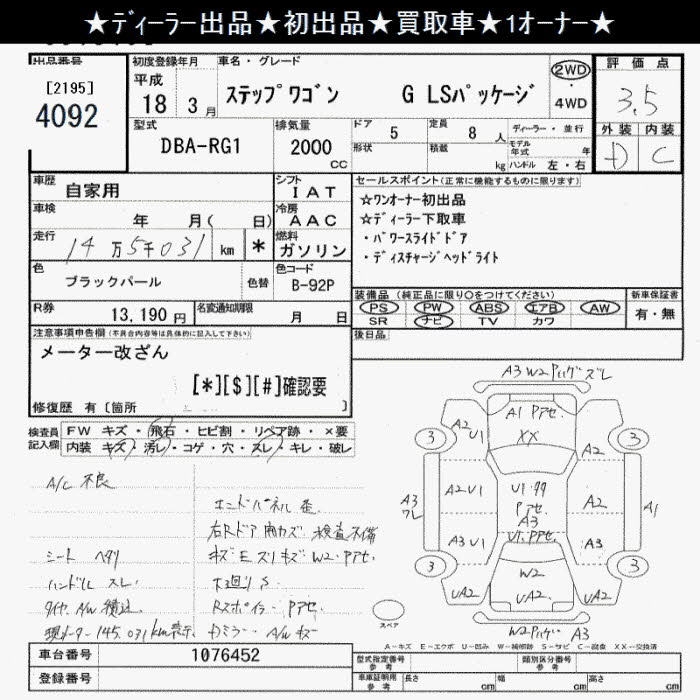 ★ディーラー出品★初出品★買取車★1オーナー★
出品番号
[2195]
4092
初度登録年月
平成
18 3月
車名・グレード
ステップワゴン G LSパッケージ
2WD
・
4WD
評価点
3.5
外装 内装
D C
型式
DBA-RG1
排気量
2000
cc
ドア 5
定員 8人
形状
積載 kg
ディーラー・並行
モデル年式 年
ハンドル 左・右
車歴
自家用
シフト
I A T
車検
年 月( 日)
冷房
A A C
走行
14万5千031 km
*
燃料
ガソリン
色
ブラックパール
色替
色コード
B-92P
R券
13,190円
名変通知期限
月 日
セールスポイント(正常に機能するものに限ります)
☆ワンオーナー初出品
☆ディーラー下取車
・パワースライドドア
・ディスチャージヘッドライト
装備品 (純正品に限り○をつけてください)
PS PW ABS エアB AW
SR ナビ TV カワ
新車保証書
有・無
後日品
注意事項申告欄(不具合内容等は具体的に記入して下さい)
メーター改ざん
[*][$][#]確認要
修復歴 有〔箇所 〕
検査員記入欄
FW キズ・飛石・ヒビ割・リペア跡・×要
内装 キズ・汚レ・コゲ・穴・スレ・キレ・破レ
A/C 不良
エンドパネル 歪
右Rドア 雨カズ 検査不備
シート ヘタリ
キズ E スリキズ W2.Pアセ.
ハンドル スレ
下廻り S
タイヤ.A/W 積込
Rスポイラー Pアセ.
現メーター 145.031km表示
Dミラー. A/W キズ
A3 W2 Pハゲ ズレ
A1 Pアセ.
XX
A2 U1
A2
3 3
A3
ワレ
A2U1
U1.
Pアセ.
A3
A2
A1
A3U1
U1.Pアセ.
A3
3 3
W2
UA2 UA2 UA2
W2Pハゲ A3
スペア
A－キズ E－エクボ U－凹み W－補修跡 S－サビ C－腐食 XX－交換済
車台番号
1076452
登録番号
型式指定番号
参考
類別区分番号
参考
車庫証明用
参考
長さ cm
幅 cm
高さ cm